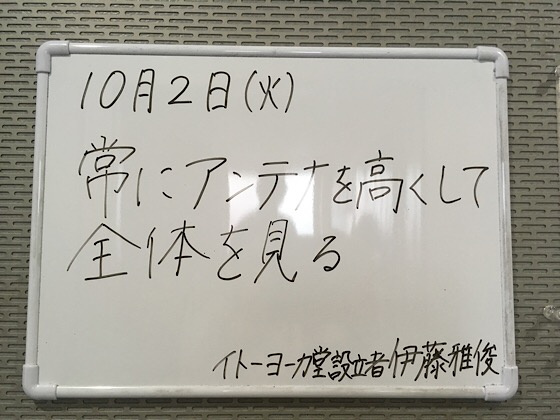 10月2日(火)
常にアンテナを高くして
全体を見る
イトーヨーカ堂設立者伊藤雅俊